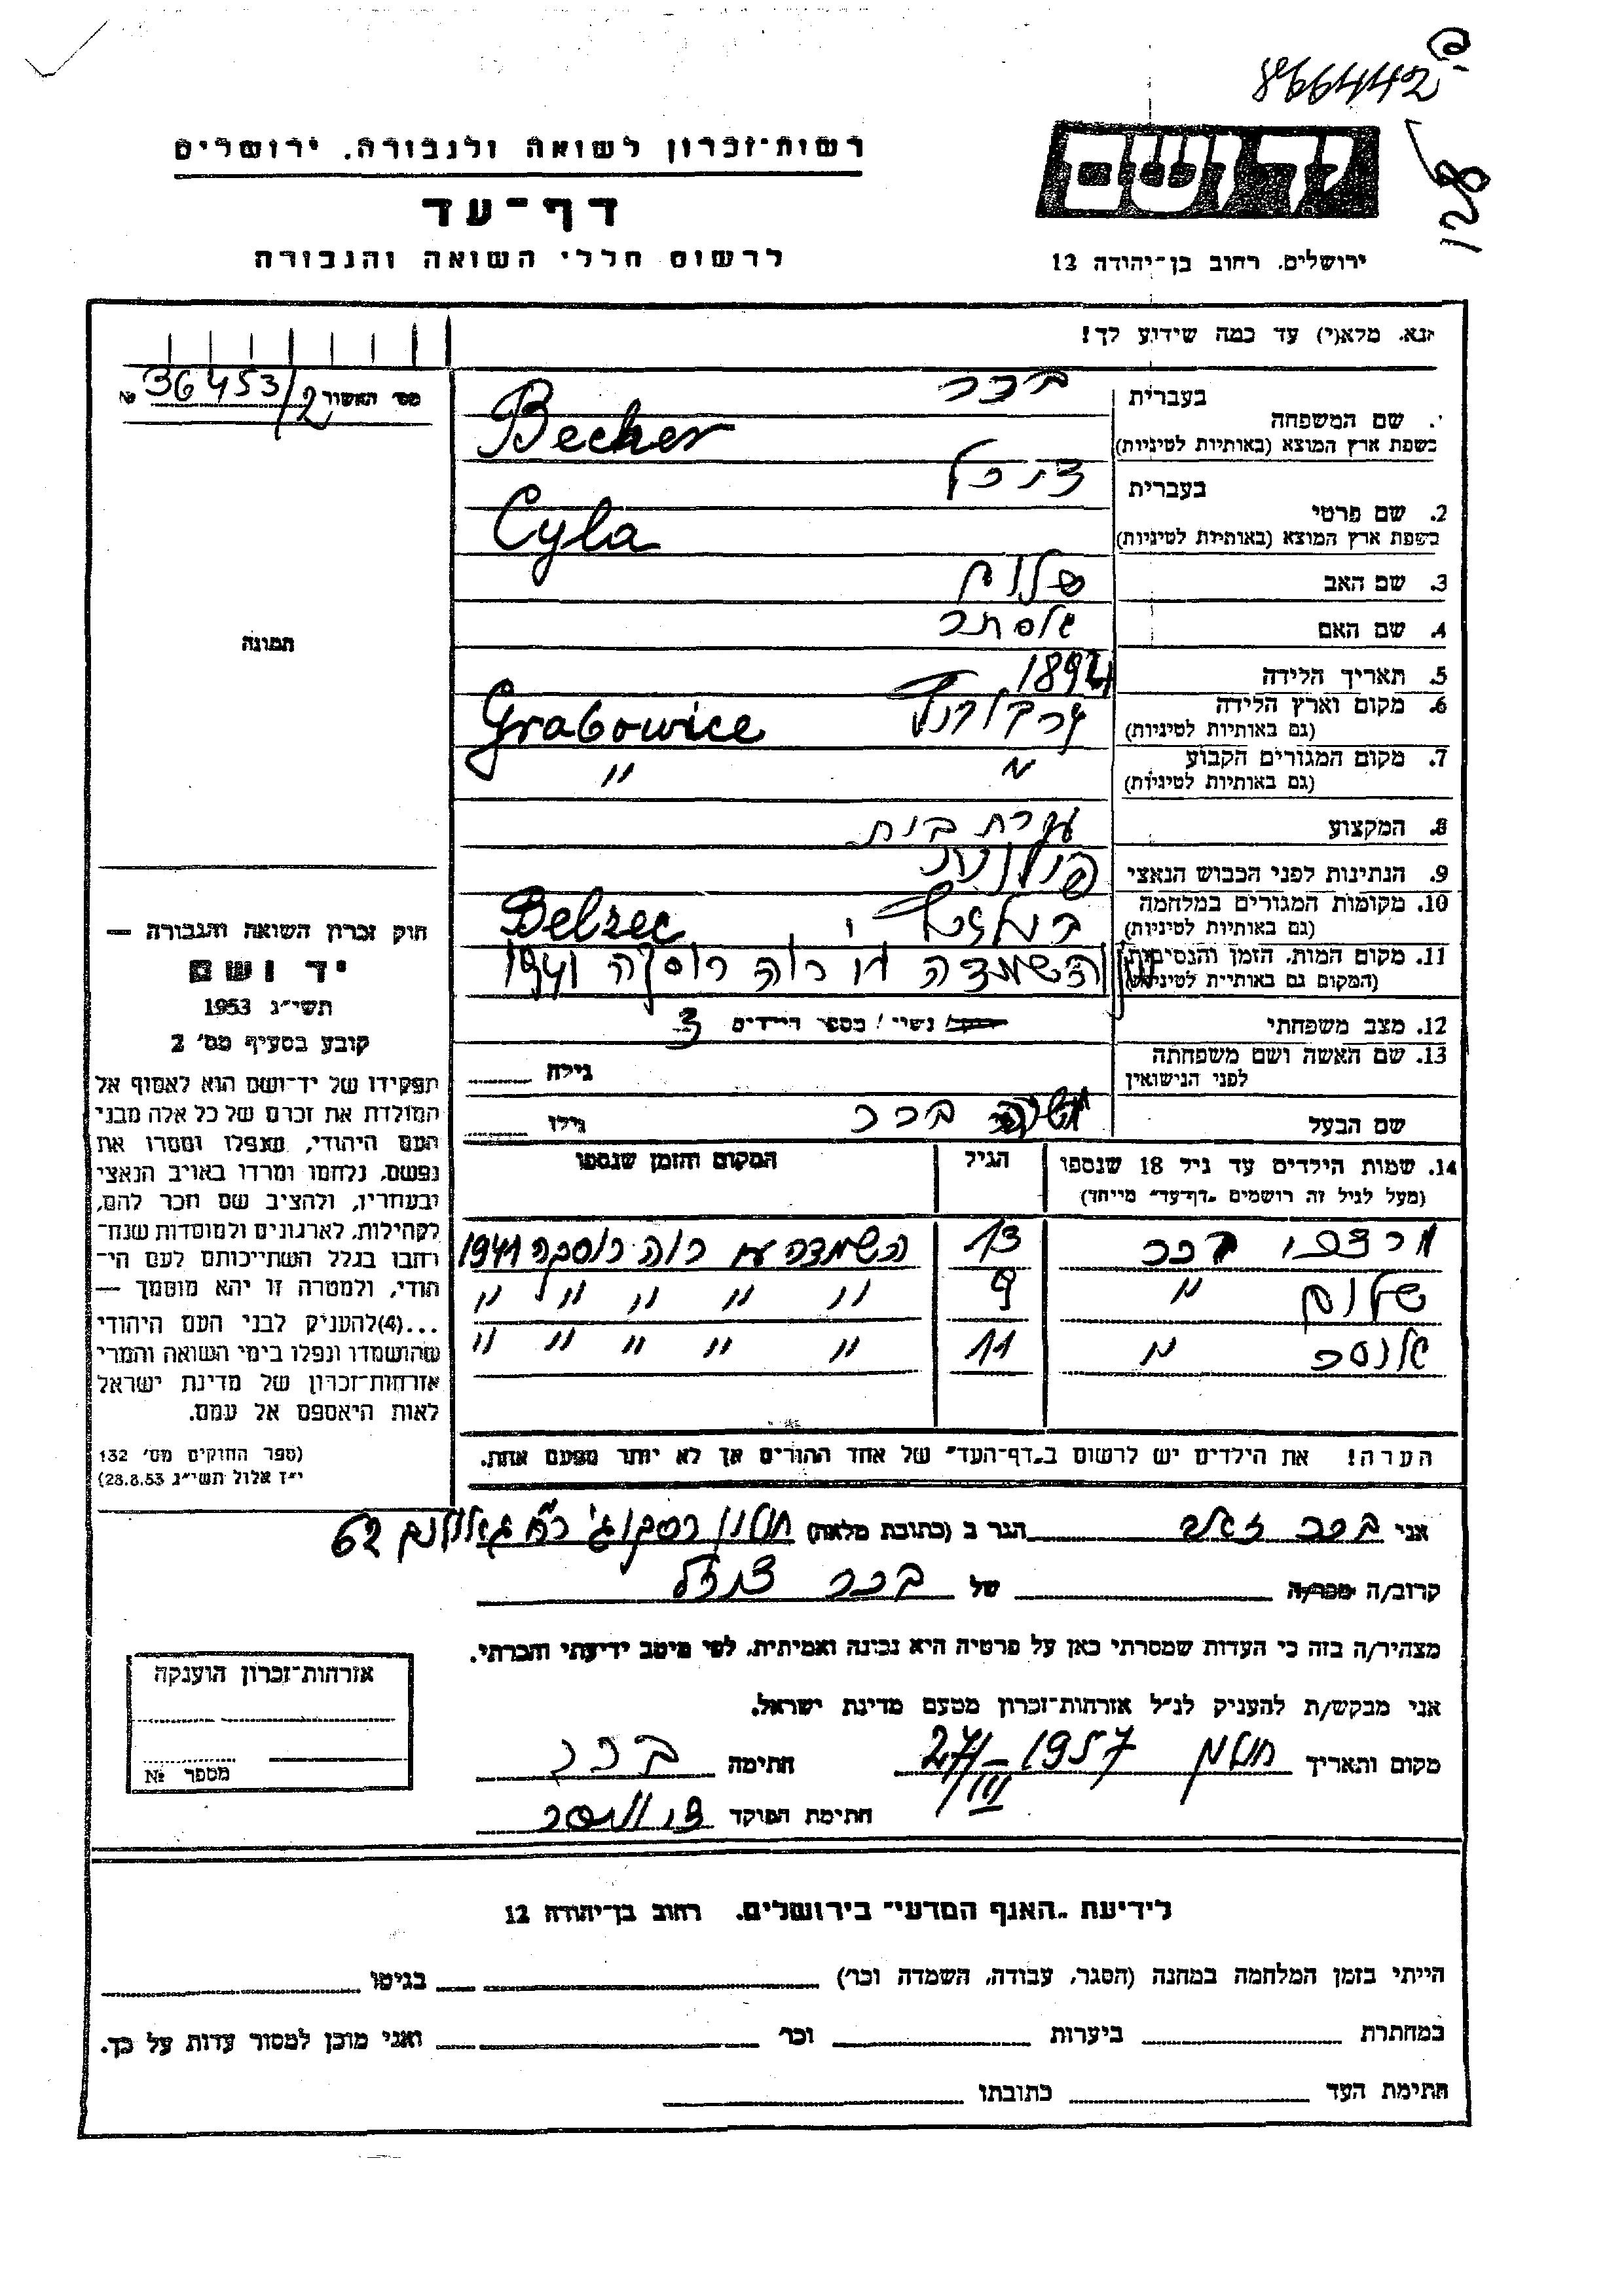 866442
128
רשות־זכרון לשואה ולגבורה. ירושלים
דף־עד
לרשום חללי השואה והגבורה
ירושלים. רחוב בן־יהודה 12
נא. מלא(י) עד כמה שידוע לך!
מס׳ האשור 36453/2 №
בעברית בכר
1. שם המשפחה
בשפת ארץ המוצא (באותיות לטיניות) Becher
בעברית
2. שם פרטי
בשפת ארץ המוצא (באותיות לטיניות) Cyla
3. שם האב שלום
4. שם האם אסתר
5. תאריך הלידה 1894
6. מקום וארץ הלידה
(גם באותיות לטיניות) Grabowice
7. מקום המגורים הקבוע " "
(גם באותיות לטיניות)
8. המקצוע עקרת בית
9. הנתינות לפני הכבוש הנאצי פולנית
10. מקומות המגורים במלחמה
(גם באותיות לטיניות) Belzec
11. מקום המות. הזמן והנסיבות השמדה רוה רוסקה 1941
(המקום גם באותיות לטיניות)
12. מצב משפחתי נשוי / מספר הילדים 3
13. שם האשה ושם משפחתה גילה
לפני הנישואין
שם הבעל בכר גילו
14. שמות הילדים עד גיל 18 שנספו הגיל המקום והזמן שנספו
(מעל לגיל זה רושמים „דף־עד” מיוחד)
בכר 13 השמדה רוה רוסקה 1941
שלום " 9 " " " " " "
" 11 " " " " "
הערה! את הילדים יש לרשום ב„דף־העד” של אחד ההורים אך לא יותר מפעם אחת.
תמונה
חוק זכרון השואה והגבורה —
יד ושם
תשי״ג 1953
קובע בסעיף מס׳ 2
תפקידו של יד־ושם הוא לאסוף אל
המולדת את זכרם של כל אלה מבני
העם היהודי, שנפלו ומסרו את
נפשם, נלחמו ומרדו באויב הנאצי
ובעוזריו, ולהציב שם וזכר להם,
לקהילות, לארגונים ולמוסדות שנח־
רבו בגלל השתייכותם לעם הי־
הודי, ולמטרה זו יהא מוסמך —
...(4)להעניק לבני העם היהודי
שהושמדו ונפלו בימי השואה והמרי
אזרחות־זכרון של מדינת ישראל
לאות היאספם אל עמם.
(ספר החוקים מס׳ 132
י״ז אלול תשי״ג 28.8.53)
אני בכר זאב הגר ב (כתובת מלאה) חולון 62
קרוב/ה מכר/ה של בכר
מצהיר/ה בזה כי העדות שמסרתי כאן על פרטיה היא נכונה ואמיתית, לפי מיטב ידיעתי והכרתי.
אני מבקש/ת להעניק לנ״ל אזרחות־זכרון מטעם מדינת ישראל.
מקום ותאריך חולון 1957 חתימה בכר
חתימת הפוקד
אזרחות־זכרון הוענקה
מספר №
לידיעת „האגף המדעי” בירושלים. רחוב בן־יהודה 12
הייתי בזמן המלחמה במחנה (הסגר, עבודה, השמדה וכו׳) בגיטו
במחתרת ביערות וכו׳ ואני מוכן למסור עדות על כך.
חתימת העד כתובתו